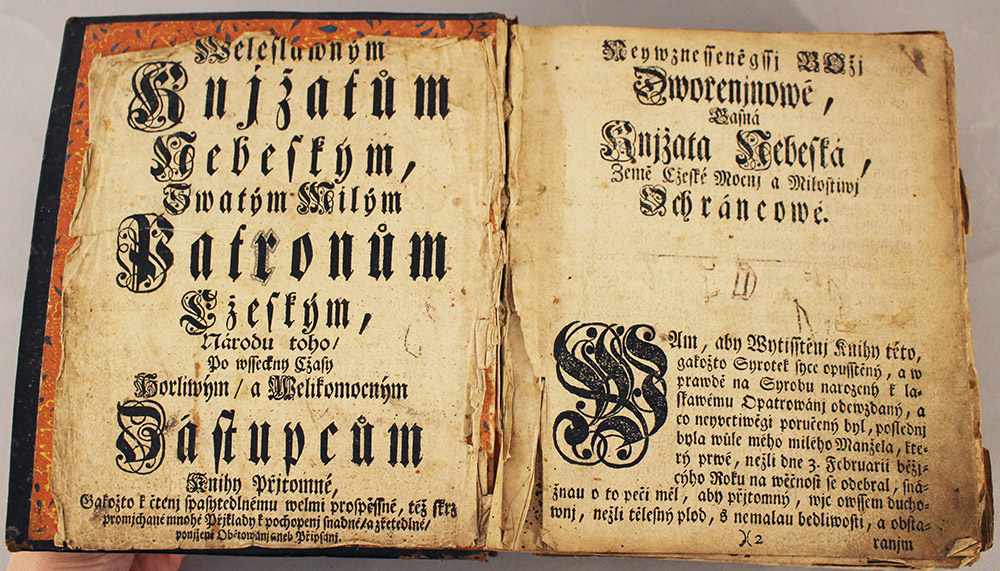 Weleslawným
Knjžatům
Nebeſkým,
Swatým Milým
Patronům
Cžeſkým,
Národu toho/
Po wſſeckny Cžaſy
Horliwým/ a Welikomocným
Záſtupcům
Knihy Přjtomné,
Gakožto k čtenj ſpaſytedlnému welmi proſpěſſné, též ſkrz
promjchané mnohé Přjklady k pochopenj ſnadné/ a zřetedlné/
ponjžené Obětowánj aneb Připſanj.
Neywzneſſeněgſſj BOžj
Dwořenjnowé,
Gaſná
Knjžata Nebeſká,
Země Cžeſké Mocnj a Miloſtiwj
Ochráncowé.
WAm, aby Wytiſſtěnj Knihy této,
gakožto Syrotek ſyce opuſſtěný, a w
prawdě na Syrobu narozený k la-
ſkawému Opatrowánj odewzdaný, a
co neyuctiwěgi poručený byl, poſlednj
byla wůle mého milého Manžela, kte-
rý prwé, nežli dne 3. Februarii běžj-
cýho Roku na wěčnoſt ſe odebral, ſná-
žnau o to peči měl, aby přjtomný, wjc owſſem ducho-
wnj, nežli tělesný plod, s nemalau bedliwoſti, a obſta-
)( 2
ranjm